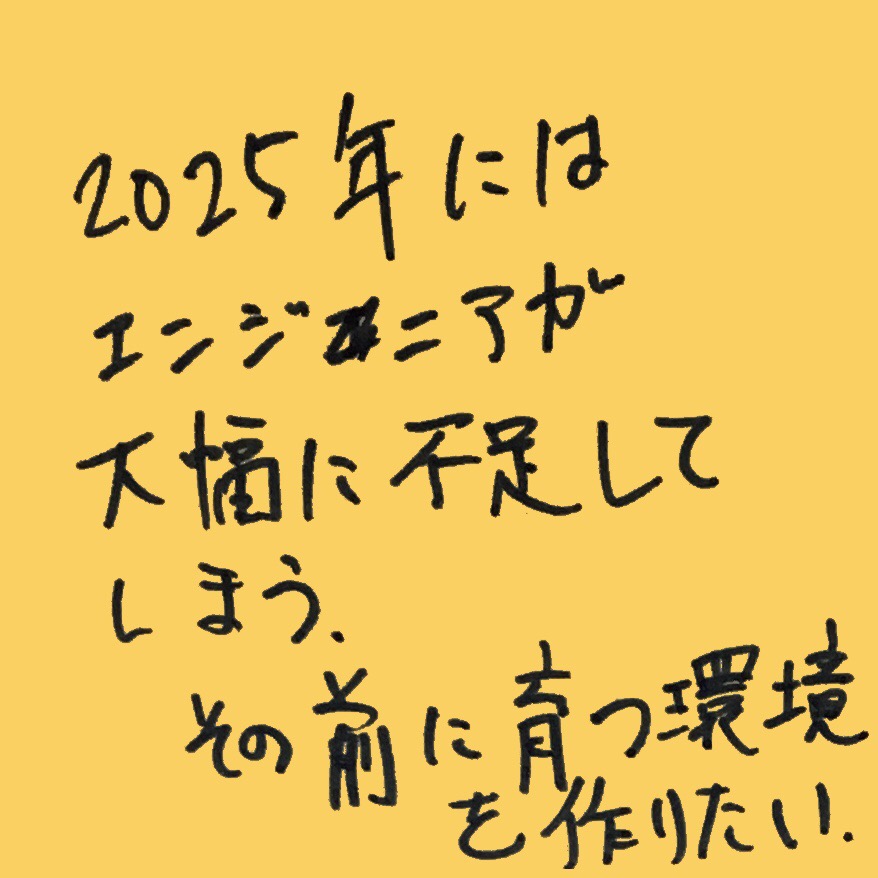 2025年には
エンジニアが
大幅に不足して
しまう.
その前に育つ環境
を作りたい.